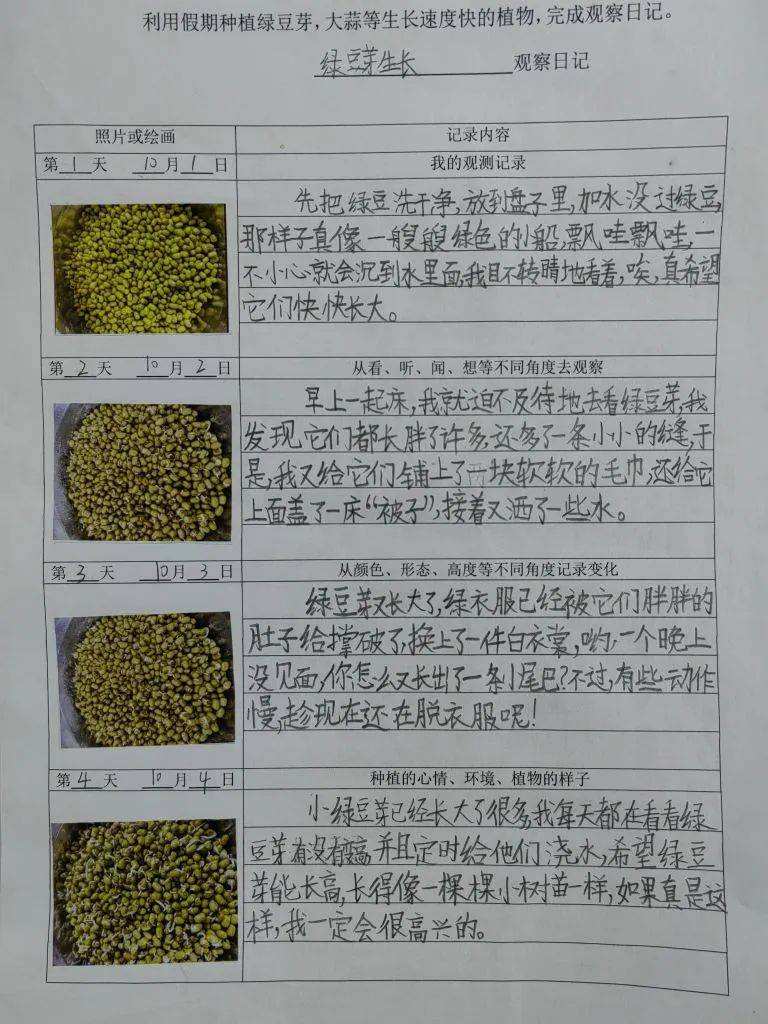 利用假期种植绿豆芽,大蒜等生长速度快的植物,完成观察日记。
绿豆芽生长 观察日记
照片或绘画 记录内容
第1天 10月1日 我的观测记录
先把绿豆洗干净,放到盘子里,加水没过绿豆,
那样子真像一艘艘绿色的小船,飘哇飘哇,一
不小心就会沉到水里面,我目不转睛地看着,唉,真希望
它们快快长大。
第2天 10月2日 从看、听、闻、想等不同角度去观察
早上一起床,我就迫不及待地去看绿豆芽,我
发现它们都长胖了许多,还多了一条小小的缝,于
是,我又给它们铺上了一块软软的毛巾,还给它
上面盖了一床“被子”,接着又洒了一些水。
第3天 10月3日 从颜色、形态、高度等不同角度记录变化
绿豆芽又长大了,绿衣服已经被它们胖胖的
肚子给撑破了,换上了一件白衣裳,哟,一个晚上
没见面,你怎么又长出了一条小尾巴?不过,有些动作
慢,趁现在还在脱衣服呢!
第4天 10月4日 种植的心情、环境、植物的样子
小绿豆芽已经长大了很多,我每天都在看看绿
豆芽有没有变高,并且定时给他们浇水,希望绿豆
芽能长高,长得像一棵棵小树苗一样,如果真是这
样,我一定会很高兴的。